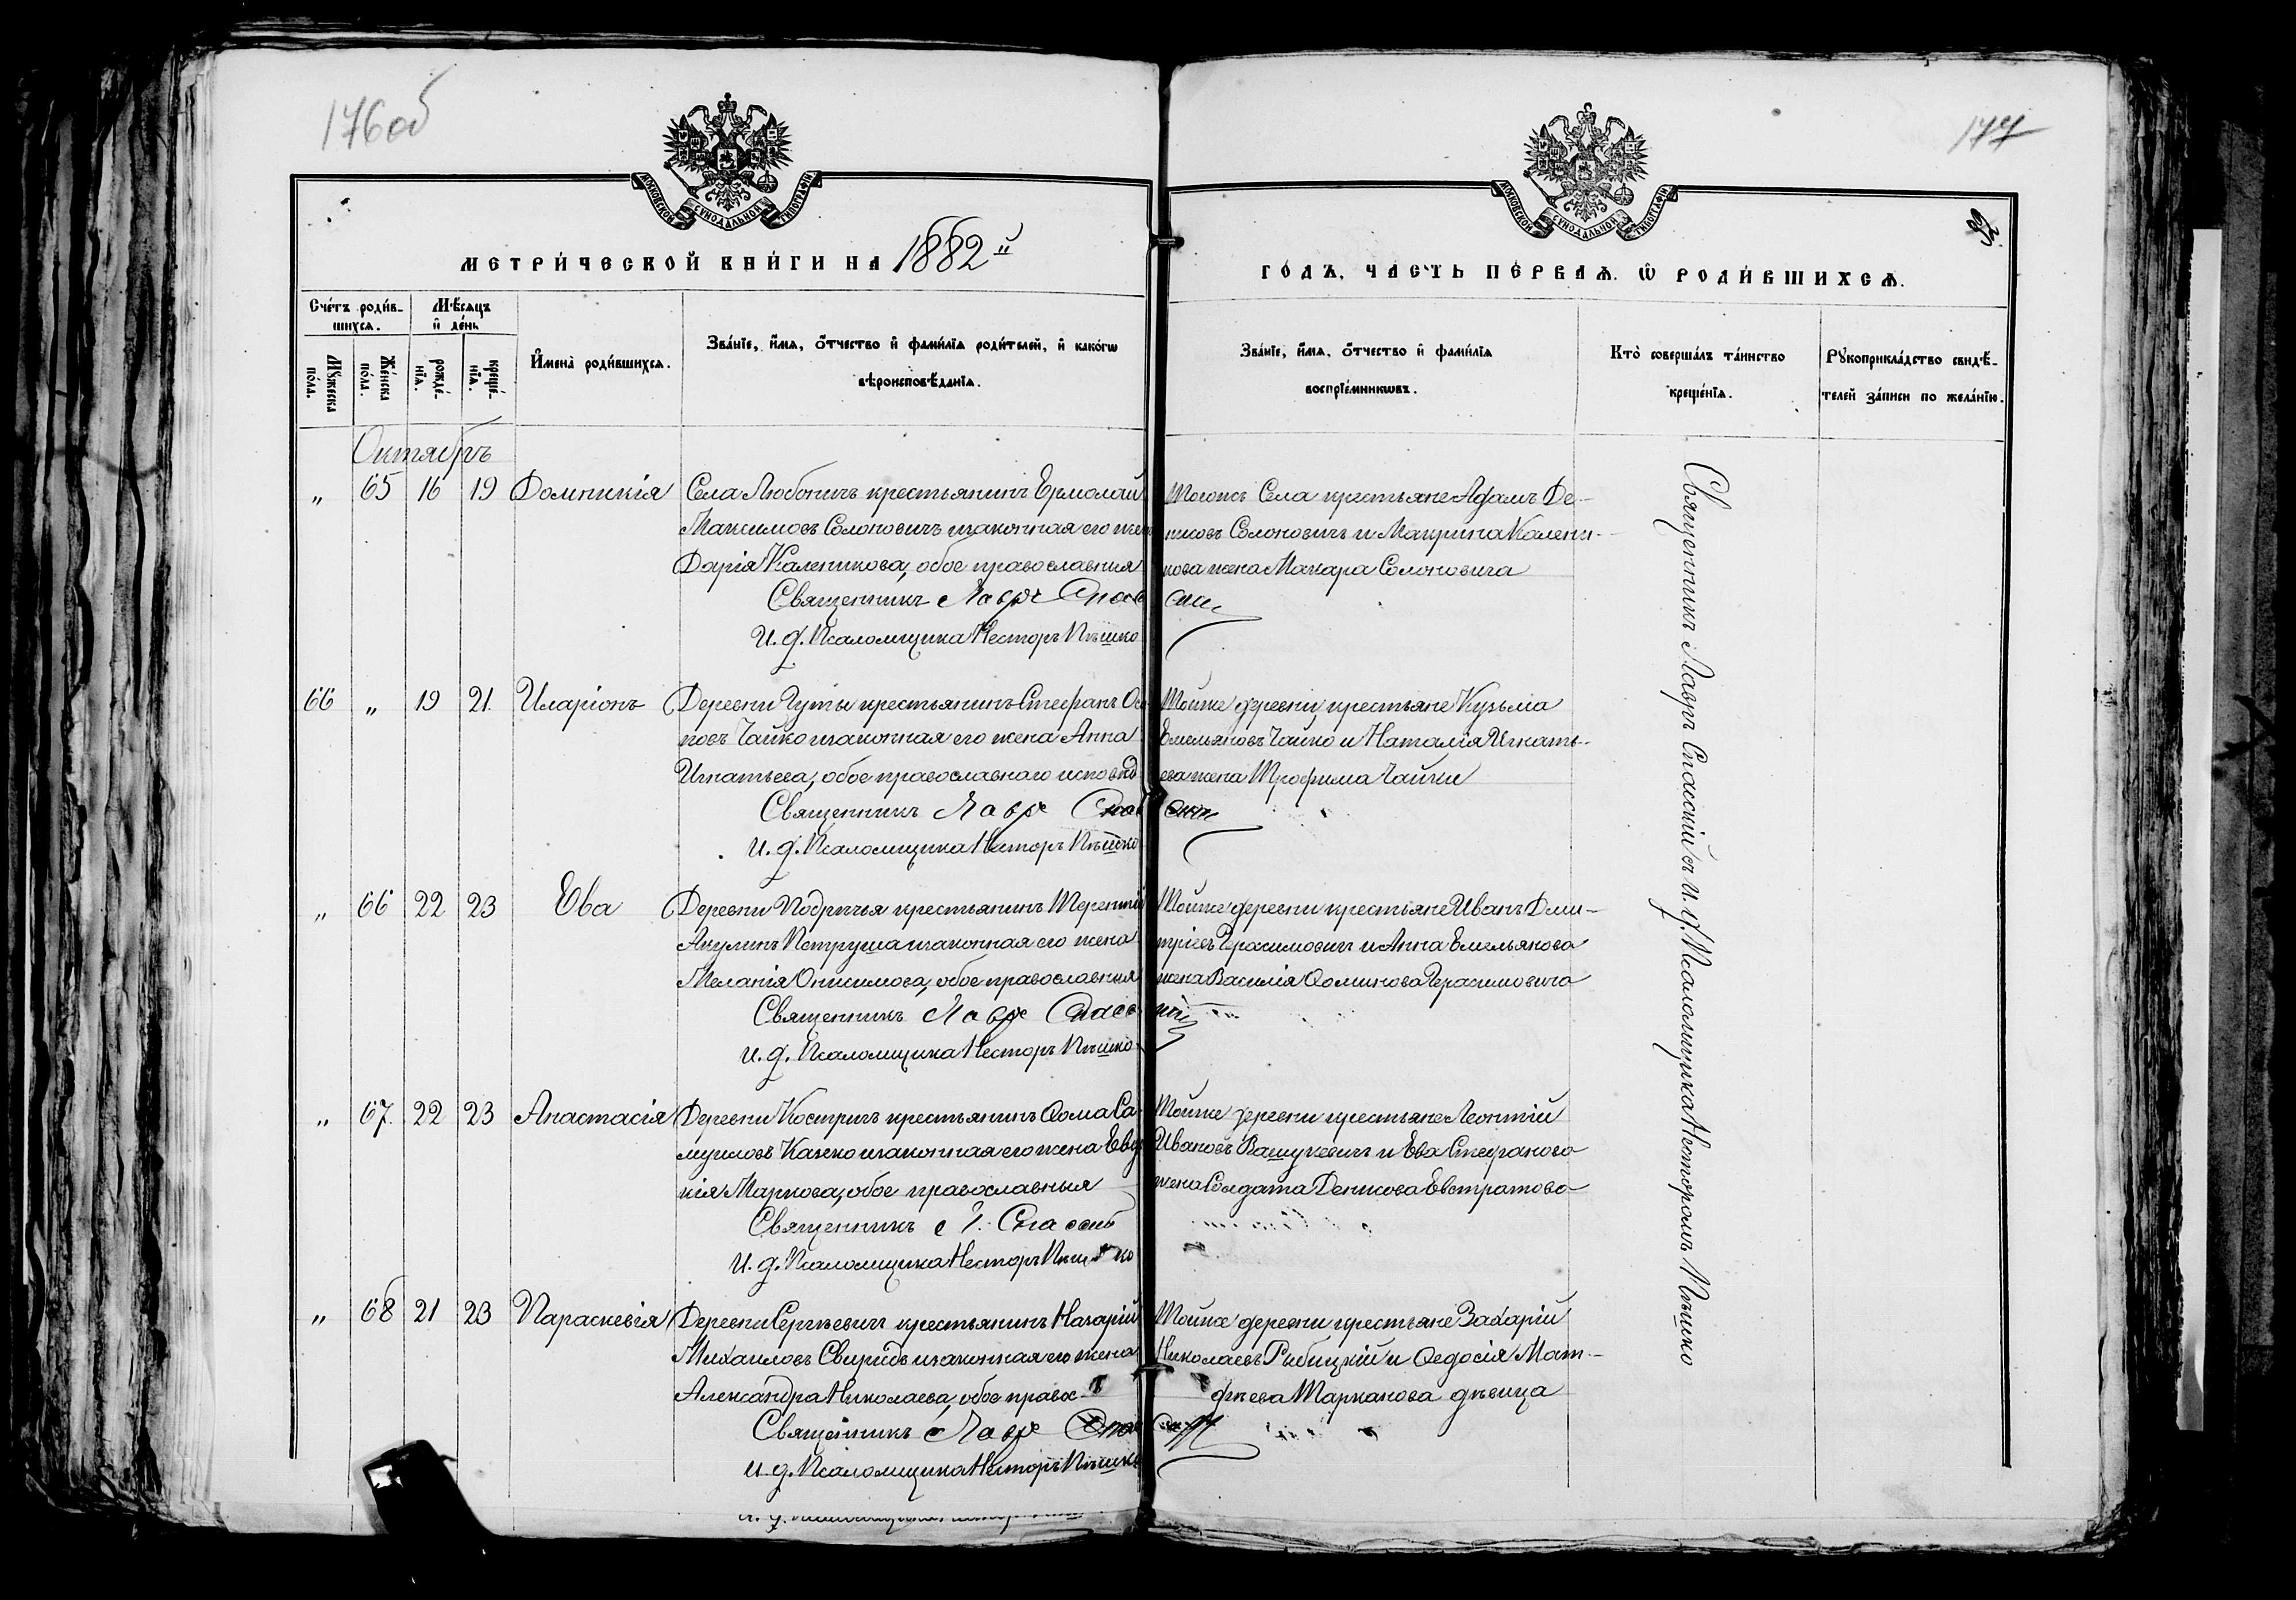 176об
МОСКОВСКОЙ СѴНОДАЛЬНОЙ ТИПОГРАФІИ
МЕТРИ́ЧЕСКОЙ КНИ́ГИ НА 1882й
Сче́тъ роди́в-
шихся.
Мѣ́сяцъ
и҆ де́нь
Мꙋ́жеска
по́ла.
Же́нска
по́ла.
рожде́-
нїя.
креще́-
нїя.
И҆мена̀ роди́вшихся.
Зва́нїе, и҆́мя, ѻ҆́тчество и҆ фами́лїя роди́телей, и҆ како́гѡ
вѣроисповѣ́данїя.
Октябрь
„ 65 16 19 Домникія Села Любоничъ крестьянинъ Ермолай
Максимовъ Солоновичъ изаконная его жена
Дарія Каленикова, обое православныя
Священникъ Лавръ Спас
И. д. Псаломщика Несторъ Пѣшко
66 „ 19 21. Иларіонъ Деревни Гуты крестьянинъ Стефанъ Оси
повъ Чайко изаконная его жена Анна
Игнатьева, обое православнаго исповѣд
Священникъ Лавръ Спас
И. д. Псаломщика Несторъ Пѣшко
„ 66 22 23 Ева Деревни Подричья крестьянинъ Терентій
Акулинъ Петруша изаконная его жена
Меланія Онисимова, обое православныя
Священникъ Лавръ Спасс
И. д. Псаломщика Несторъ Пѣшко
„ 67. 22 23 Анастасія Деревни Костричъ крестьянинъ Ѳома Са-
муиловъ Казко изаконная его жена Евдо
кія Маркова, обое православныя
Священникъ Л. Спасскій
И. д. Псаломщика Несторъ Пѣшко
„ 68 21 23 Параскевія Деревни Сергѣевичъ крестьянинъ Назарій
Михаиловъ Свиридъ изаконная его жена
Александра Николаева, обое правос
Священникъ Лавръ Спас
И. д. Псаломщика Несторъ Пѣшко
177
МОСКОВСКОЙ СѴНОДАЛЬНОЙ ТИПОГРАФІИ
ГО́ДЪ, ЧА́СТЬ ПЕ́РВАЯ. Ѽ РОДИ́ВШИХСЯ.
Зва́нїе, и҆́мя, ѻ҆́тчество и҆ фами́лїя
воспрїе́мникѡвъ.
Кто̀ соверша́лъ та́инство
креще́нїя.
Рꙋкоприкла́дство свидѣ́-
телей за́писи по жела́нїю.
Тогожъ Села крестьяне Адамъ Де-
нисовъ Солоновичъ и Макрина Калени-
кова жена Макара Солоновича
скій
Тойже деревни крестьяне Кузьма
Емельяновъ Чайко и Наталія Игнать-
ева жена Трофима Чайки
скій
Тойже деревни крестьяне Иванъ Дми-
тріевъ Герасимовичъ и Анна Емельянова
жена Василія Ѳоминова Герасимовича
кій
Тойже деревни крестьяне Леонтій
Ивановъ Вашукевичъ и Ева Стефанова
жена Солдата Денисова Евстратова
Тойже деревни крестьяне Захарій
Николаевъ Рибицкій и Ѳедосія Мат-
фѣева Тарканова дѣвица
скій
Священникъ Лавръ Спасскій съ И. д. Псаломщика Несторомъ Пѣшко